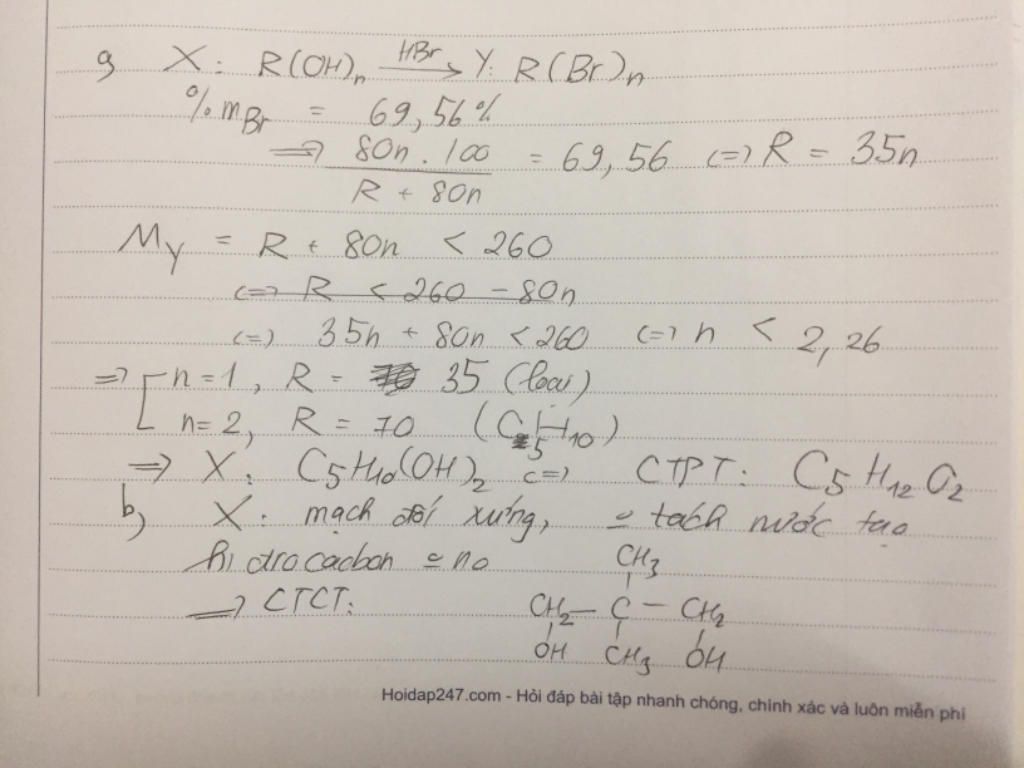 a, X: R(OH)n —HBr→ Y: R(Br)n
%mBr = 69,56%
=> 80n . 100 / R + 80n = 69,56 <=> R = 35n
MY = R + 80n < 260
<=> R < 260 - 80n
<=> 35n + 80n < 260 <=> n < 2,26
=> [ n = 1, R = 35 (loại)
n = 2, R = 70 (C5H10)
=> X: C5H10(OH)2 <=> CTPT: C5H12O2
b, X: mạch đối xứng, tách nước tạo
hidrocacbon no
CH3
=> CTCT: CH2 - C - CH2
OH CH3 OH
Hoidap247.com - Hỏi đáp bài tập nhanh chóng, chính xác và luôn miễn phí